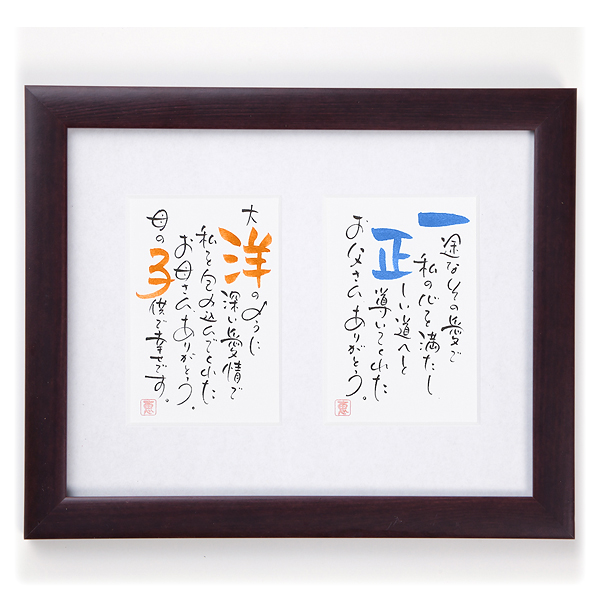 一途なその愛で
私の心を満たし
正しい道へと
導いてくれた
お父さんありがとう。
大洋のように
深い愛情で
私を包み込んでくれた
お母さんありがとう。
母の子供で幸せです。